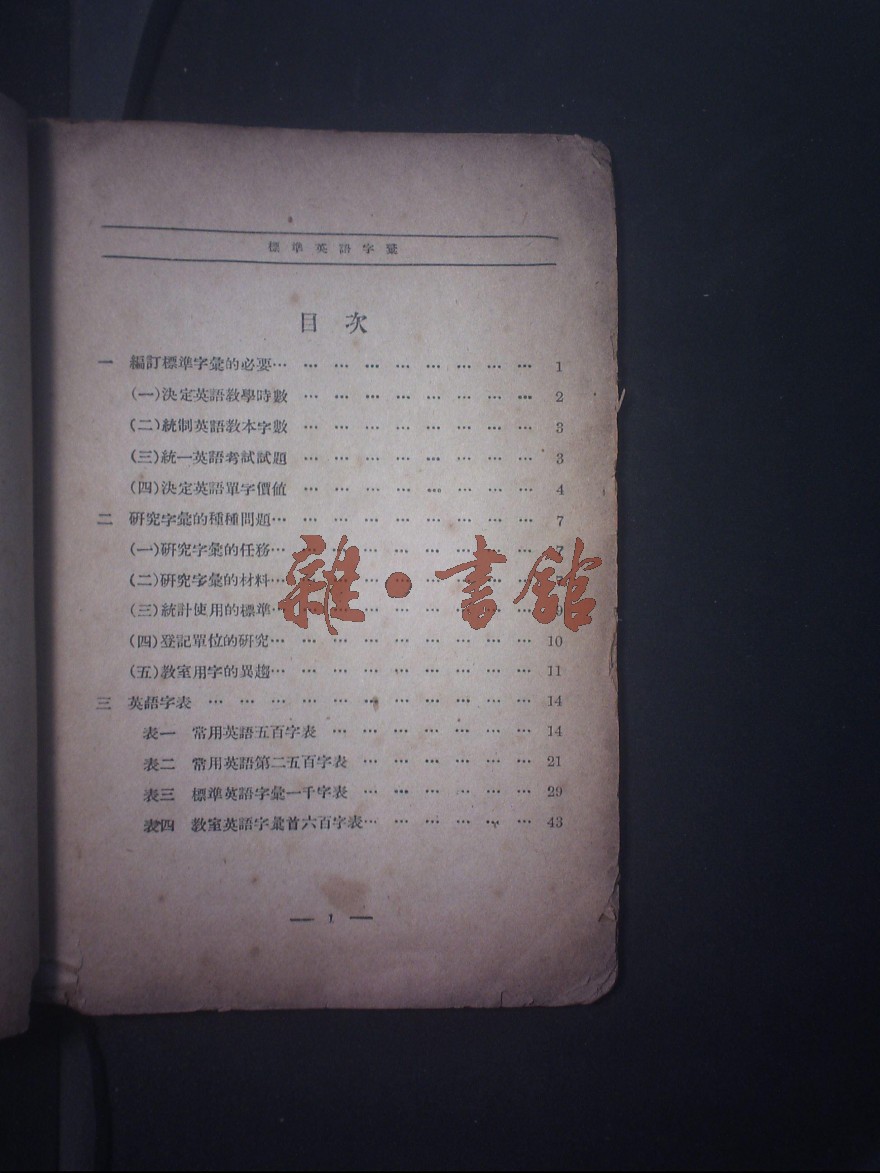 標準英語字彙
目次
一 編訂標準字彙的必要… … … … … … … … … 1
(一)決定英語教學時數 … … … … … … … … 2
(二)統制英語教本字數 … … … … … … … … 3
(三)統一英語考試試題 … … … … … … … … 3
(四)決定英語單字價值 … … … … … … … … 4
二 研究字彙的種種問題… … … … … … … … … 7
(一)研究字彙的任務… … … … … … … … … 7
(二)研究字彙的材料… … … … … … … … …
(三)統計使用的標準… … … … … … … … … 9
(四)登記單位的研究… … … … … … … … … 10
(五)教室用字的異趨… … … … … … … … … 11
三 英語字表 … … … … … … … … … … … 14
表一 常用英語五百字表 … … … … … … … 14
表二 常用英語第二五百字表 … … … … … … 21
表三 標準英語字彙一千字表 … … … … … … 29
表四 教室英語字彙首六百字表… … … … … … 43
— 1 —
雜·書館